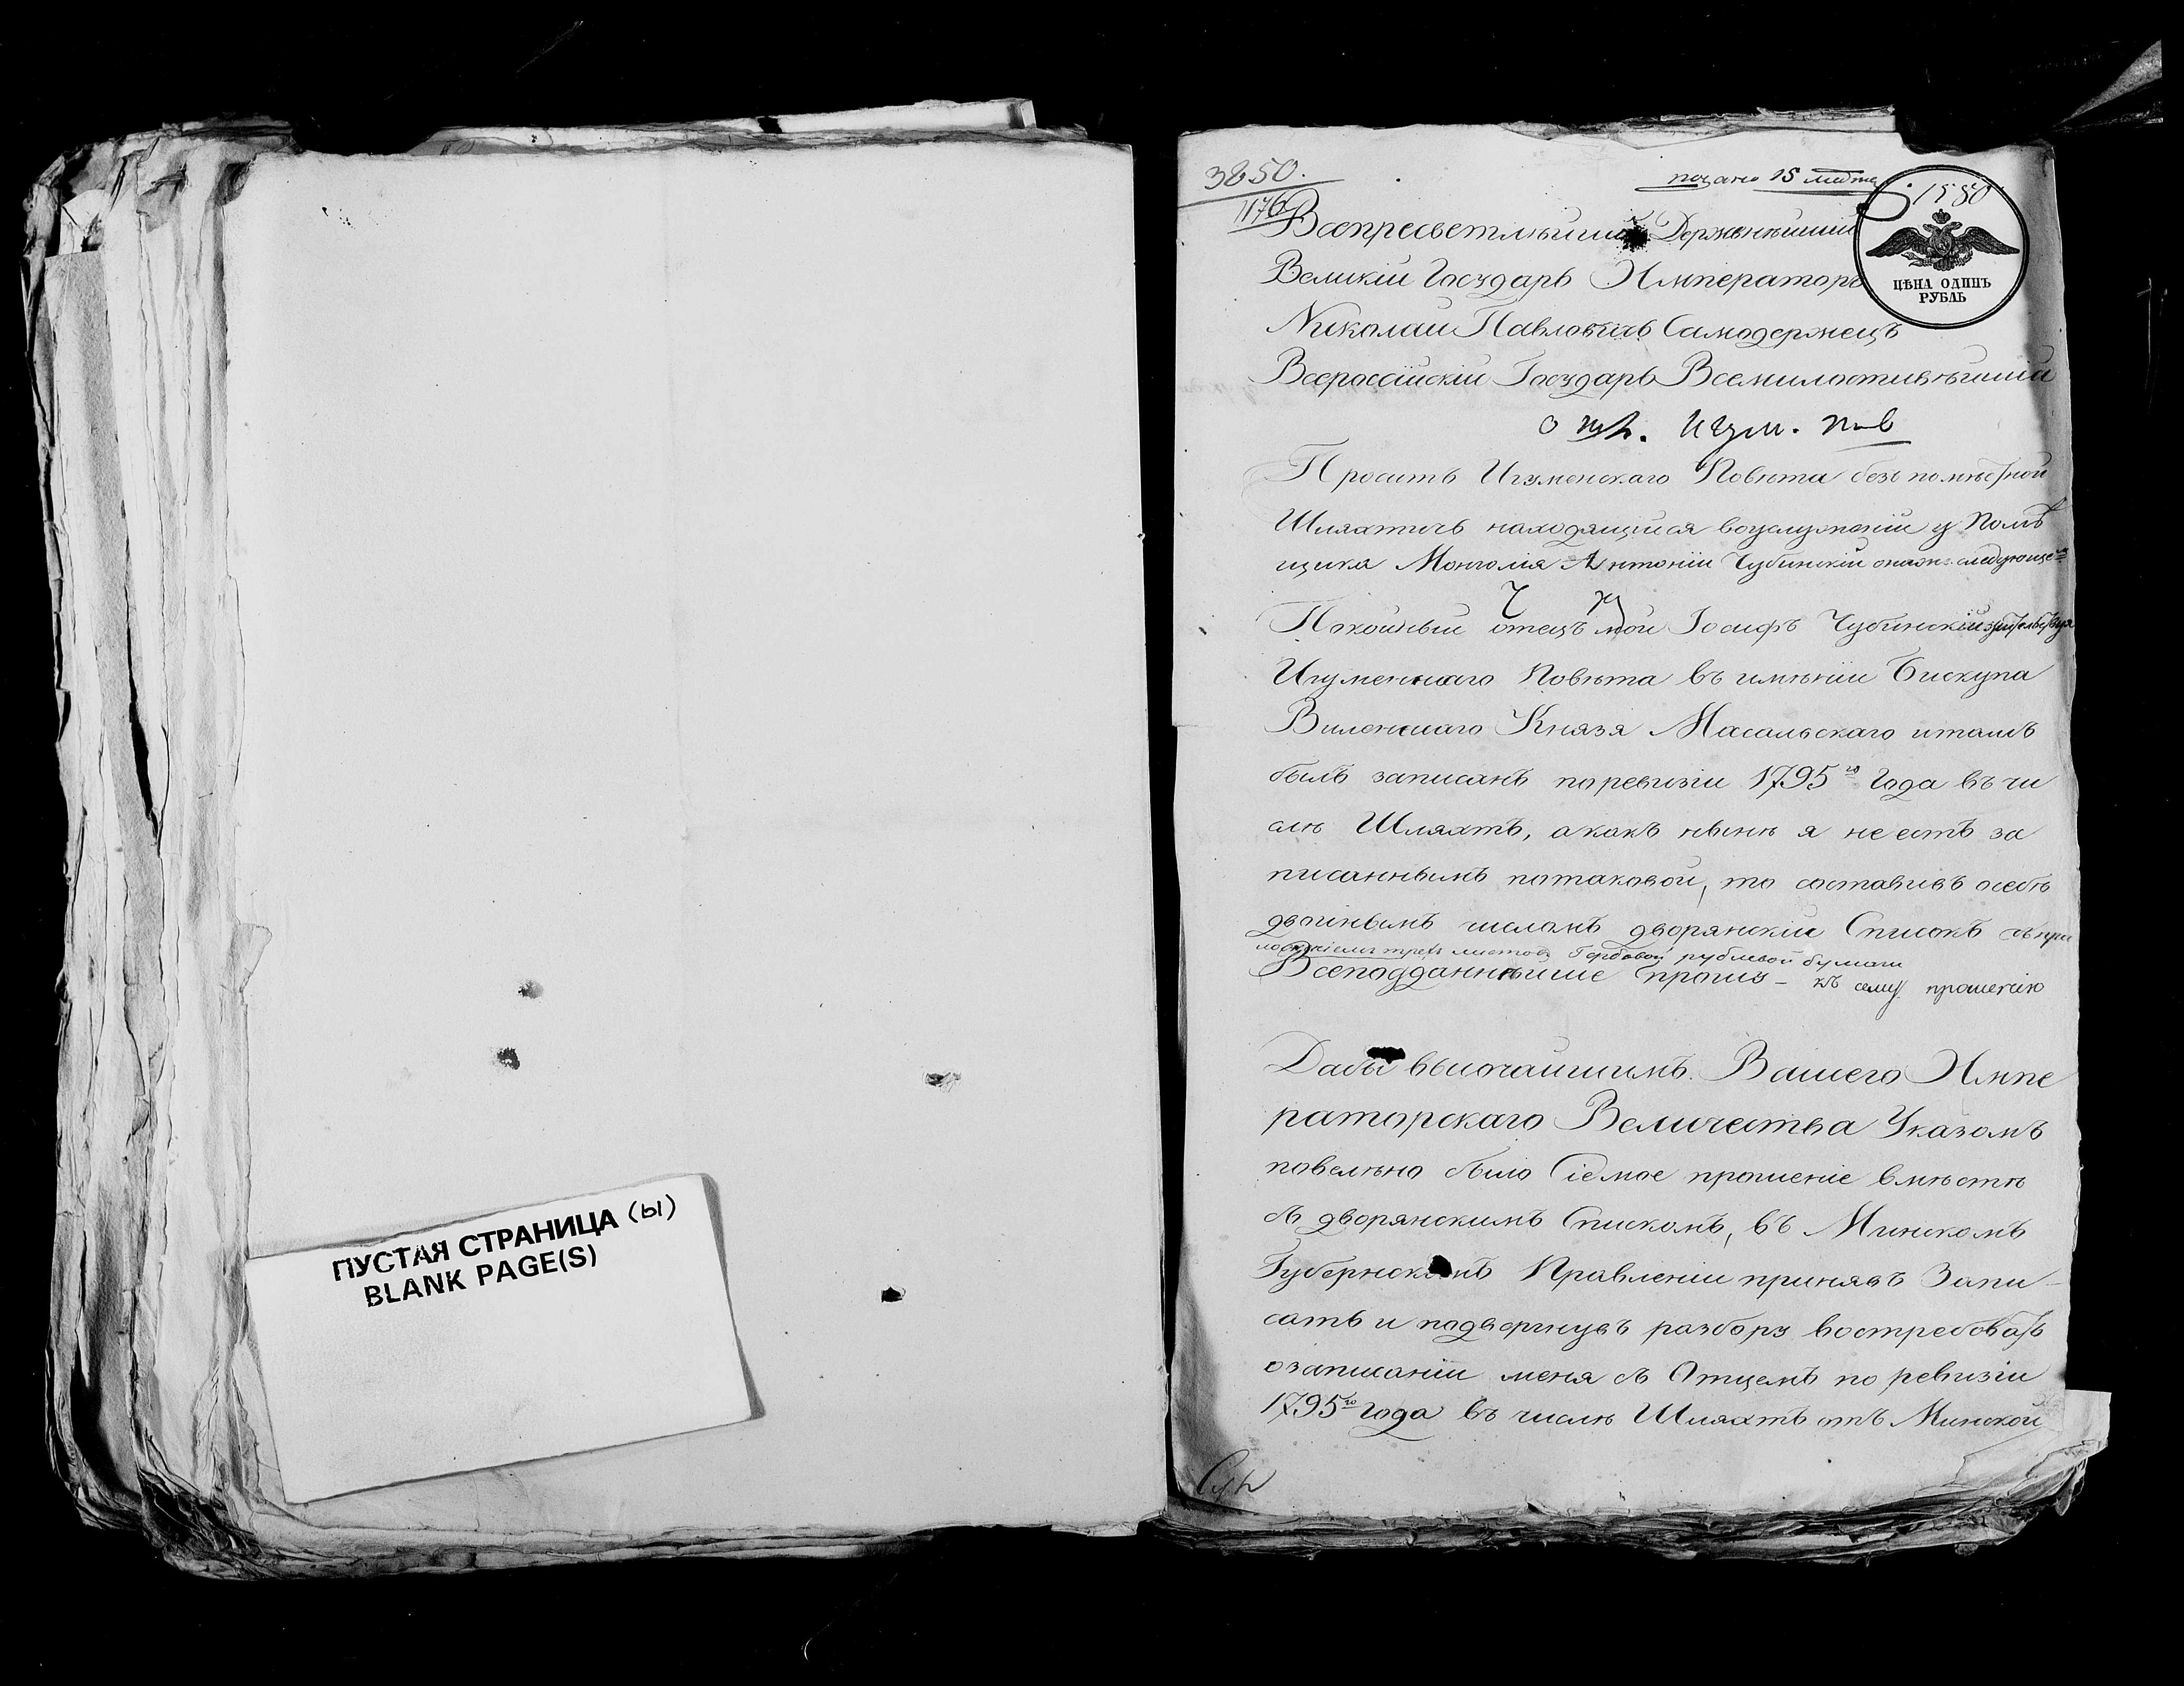 ПУСТАЯ СТРАНИЦА (ы)
BLANK PAGE(S)
3850.
1176
подано 15 
1580
ЦѢНА ОДИНЪ
РУБЛЬ
Всепресветлѣйшій Державнѣйшій
Великій Государь Императоръ
Николай Павловичь Самодержецъ
Всероссійскій Государь Всемилостивѣйшій
Проситъ Игуменскаго Повѣта безпомѣстной
Шляхтичь находящійся воуслуженіи у Помѣ
щика Монголія Антоній Чубинскій онижеследующемъ
Ч
Покойный отецъ мой Іосифъ Чубинскій жительствуя
Игуменскаго Повѣта въ имѣніи Бискупа
Виленскаго Князя Масальскаго итамъ
былъ записанъ поревизіи 1795го Года въ чи
слѣ Шляхтъ, акакъ нынѣ я не естъ за
писаннымъ потаковой, то составивъ осебѣ
двойнымъ числомъ дворянскій Списокъ съпри
ложеніемъ трехъ листовъ Гербовой рублевой бумаги
Всеподданнѣйше прошу - къ сему прошенію
Дабы высочайшимъ Вашего Импе
раторскаго Величества Указомъ
повелѣно было Сіе мое прошеніе вмѣстѣ
съ дворянскимъ Спискомъ, въ Минскомъ
Губернскомъ Правленіи принявъ Запи
сать и подвергнувъ разбору востребовать
озаписаніи меня съ Отцемъ по ревизіи
1795го года въ числѣ Шляхтъ отъ Минской